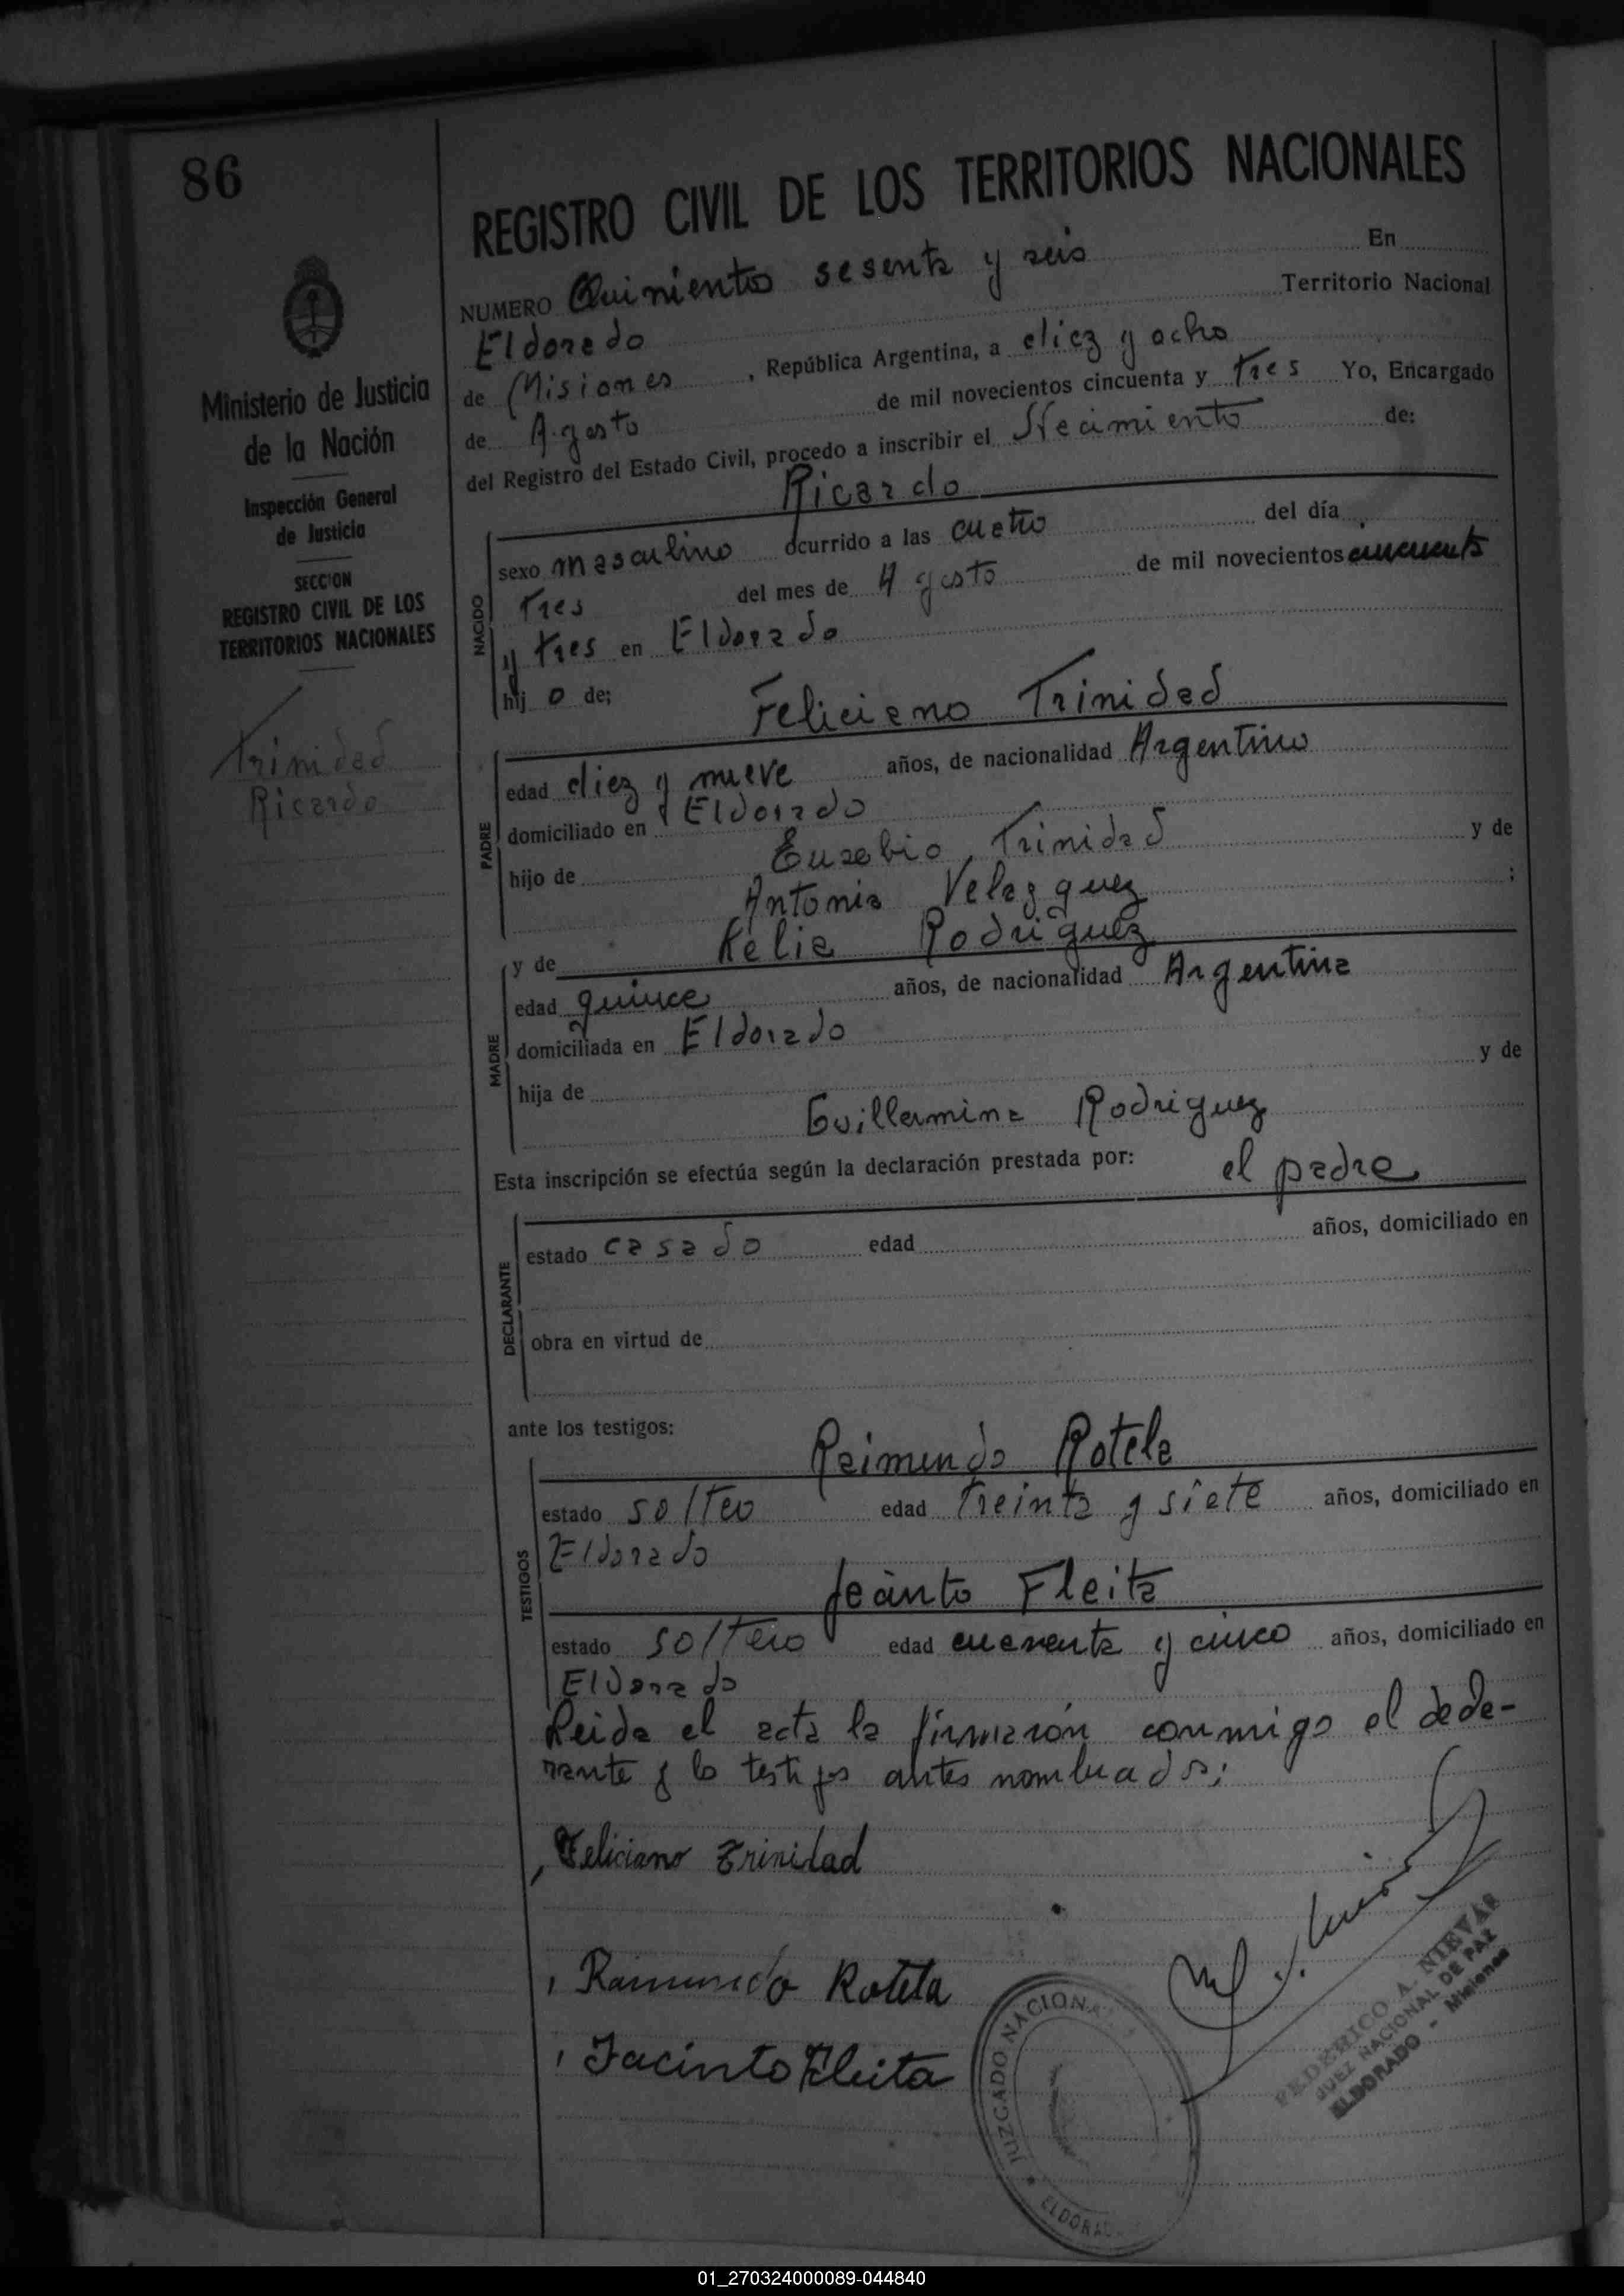 86
REGISTRO CIVIL DE LOS TERRITORIOS NACIONALES
Ministerio de Justicia
de la Nación
Inspección General
de Justicia
SECCION
REGISTRO CIVIL DE LOS
TERRITORIOS NACIONALES
Trinidad
Ricardo
NUMERO Quiniento sesenta y seis En
Eldorado Territorio Nacional
de Misiones, República Argentina, a diez y ocho
de Agosto de mil novecientos cincuenta y tres Yo, Encargado
del Registro del Estado Civil, procedo a inscribir el Nacimiento de:
Ricardo
NACIDO
sexo masculino ocurrido a las cuatro del día
tres del mes de Agosto de mil novecientos cincuenta
y tres en Eldorado
hij o de;
Feliciano Trinidad
PADRE
edad diez y nueve años, de nacionalidad Argentino
domiciliado en Eldorado
hijo de Eusebio Trinidad y de
Antonia Velazquez ;
y de Relia Rodriguez
MADRE
edad quince años, de nacionalidad Argentina
domiciliada en Eldorado
hija de y de
Guillermina Rodriguez
Esta inscripción se efectúa según la declaración prestada por: el padre
DECLARANTE
estado casado edad años, domiciliado en
obra en virtud de
ante los testigos:
Raimundo Rotela
TESTIGOS
estado solteo edad treinta y siete años, domiciliado en
Eldorado
Jacinto Fleita
estado soltero edad cuarenta y cinco años, domiciliado en
Eldorado
Leida el acta la firmarón conmigo el decla-
rante y lo testigos antes nombrados;
Feliciano Trinidad
Raimundo Rotela
Jacinto Fleita
JUZGADO NACIONAL
ELDORADO
FEDERICO A. NIEVAS
JUEZ NACIONAL DE PAZ
ELDORADO - Misiones
01_270324000089-044840